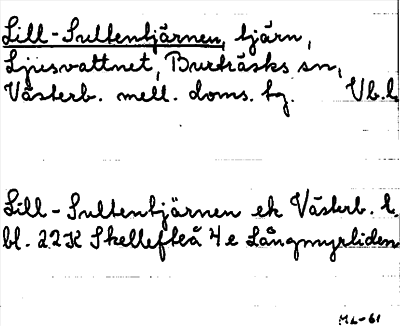 Lill-Sultentjärnen, tjärn,
Ljusvattnet, Burträsks sn,
Västerb. mell. doms. tg. Vb.l.
Lill-Sultentjärnen ek Västerb. l.
bl. 22K Skellefteå 4e Långmyrliden
ML-61